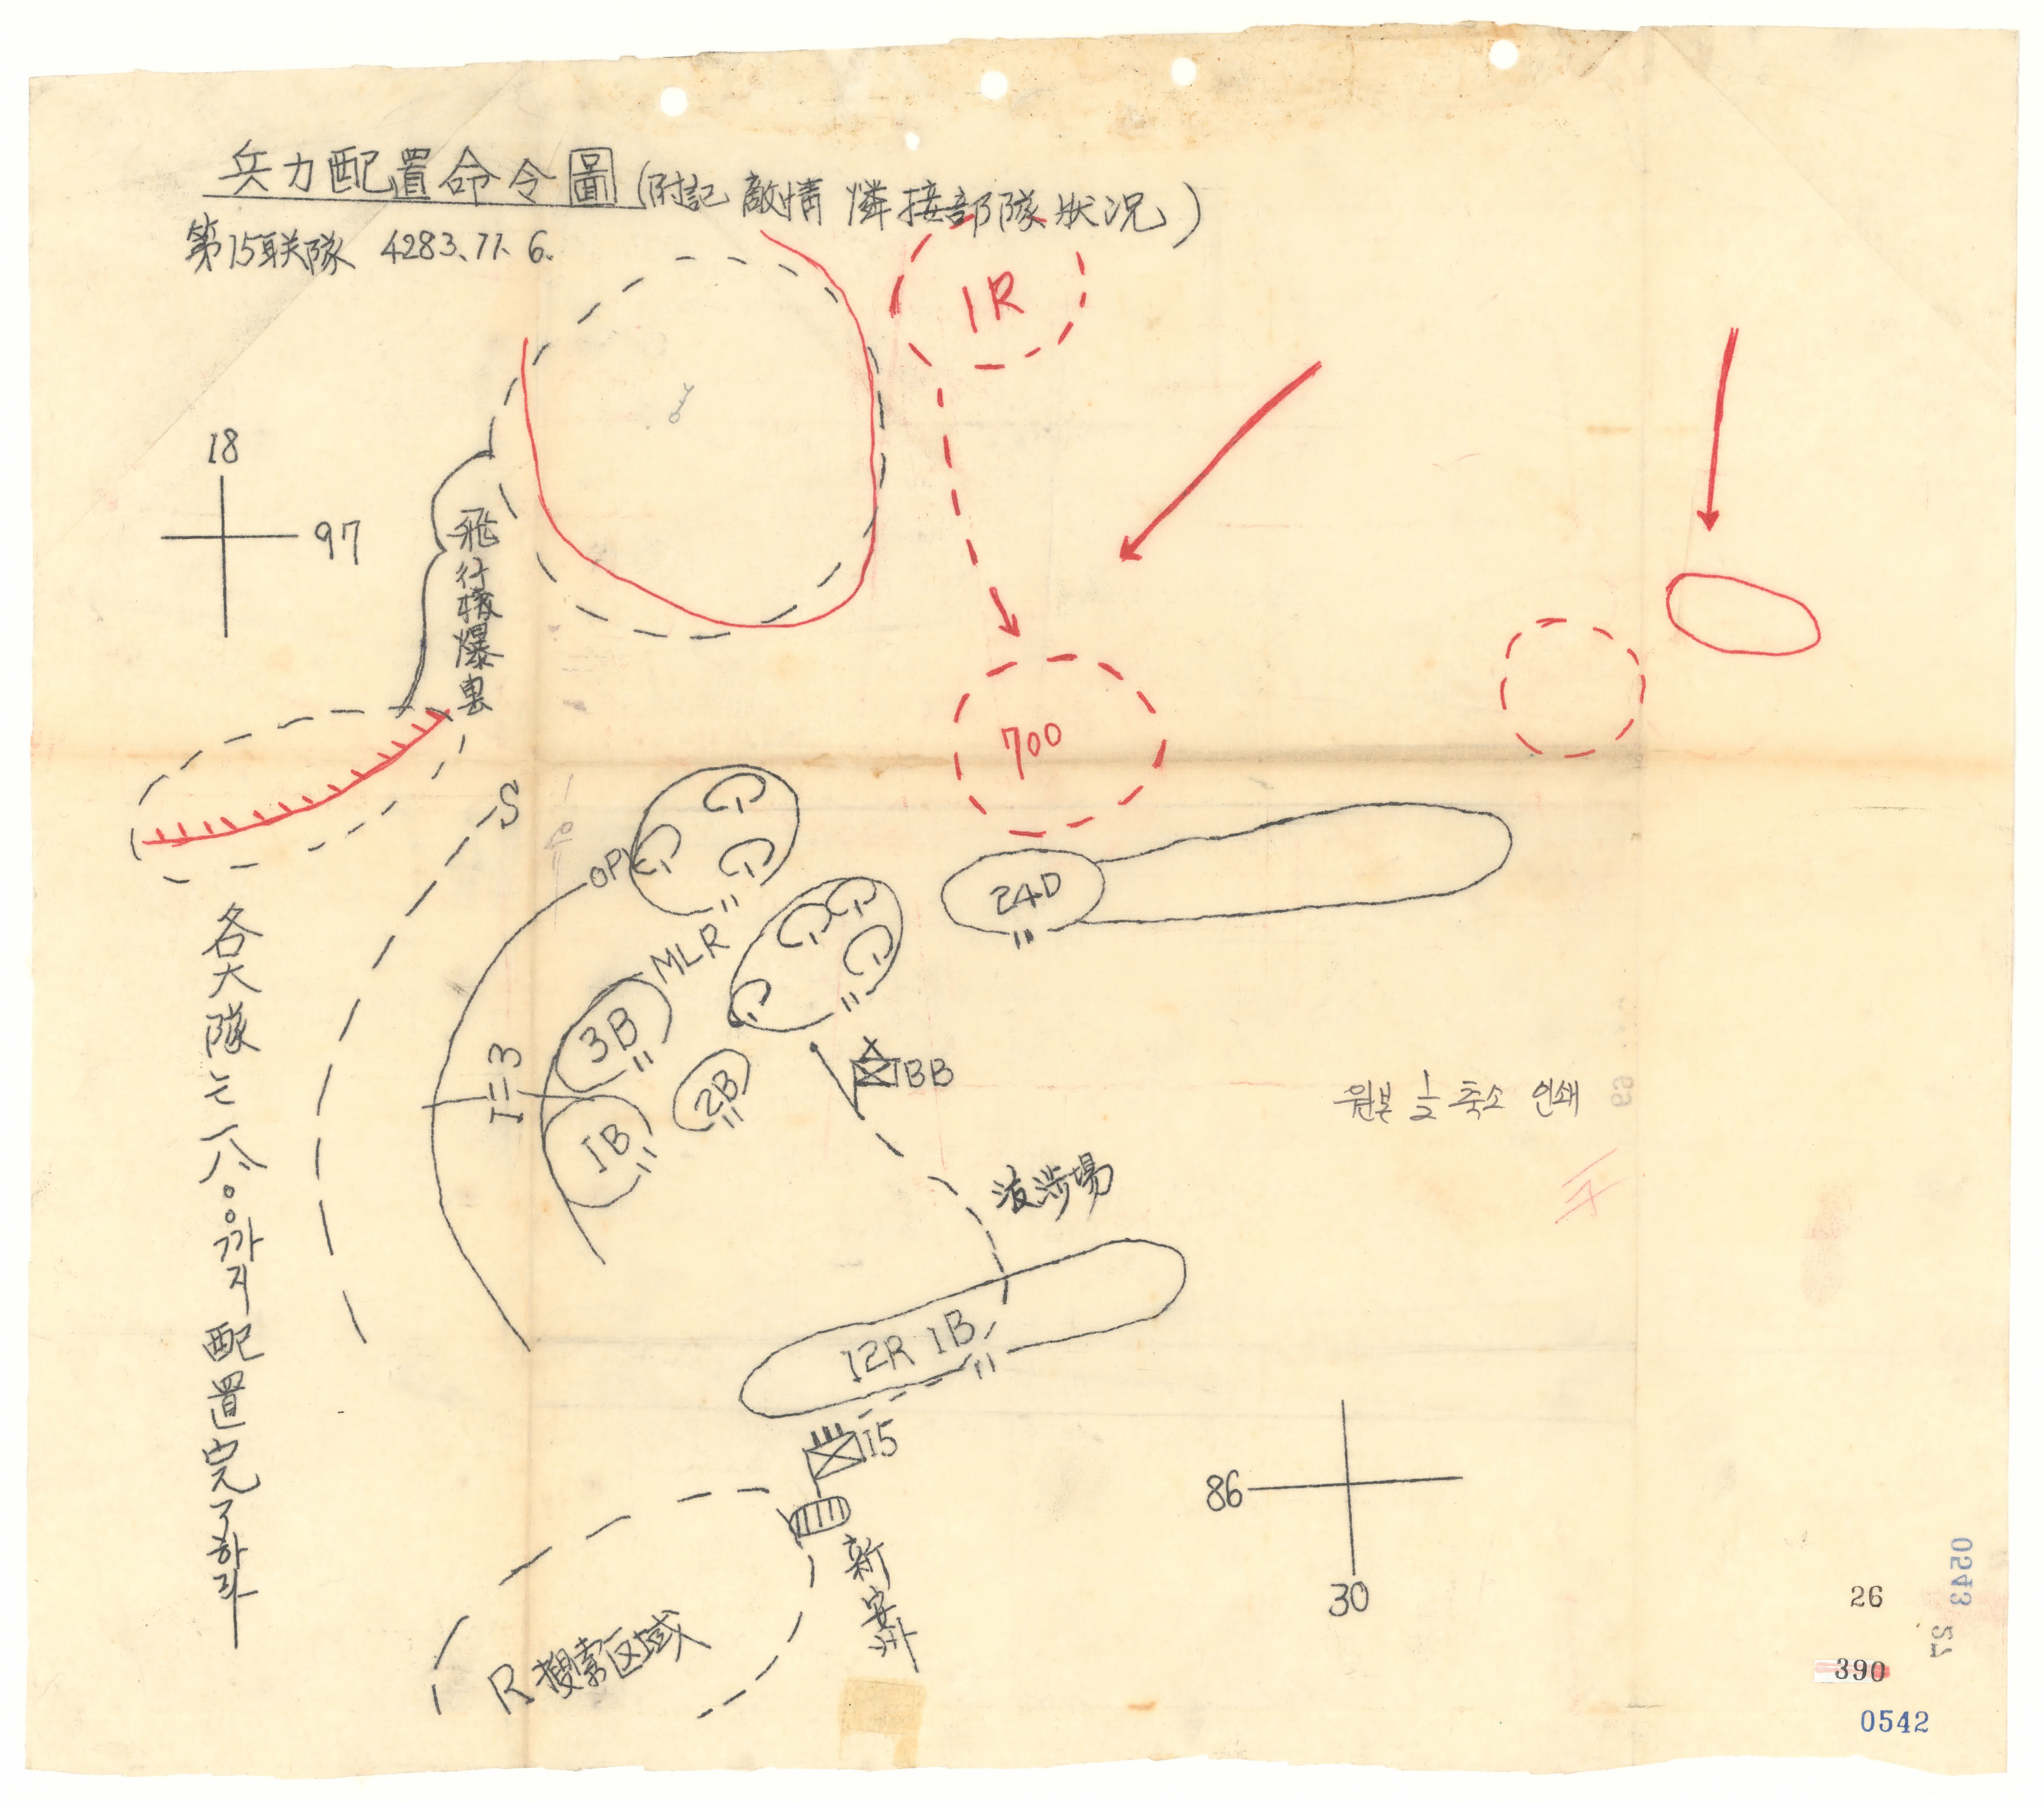 兵力配置命令圖(附記 敵情 憐接部隊狀況)
第15联隊 4283.11.6.
1R
18
97
飛行機爆
700
S
OPL
24D
MLR
3B
I=3
2B
1B
BB
各大隊는 一八〇〇까지 配置完了하라
원본 1/2 축소 인쇄
渡涉場
12R 1B
15
86
30
新安州
R 搜索区域
26
390
0542
0543
27